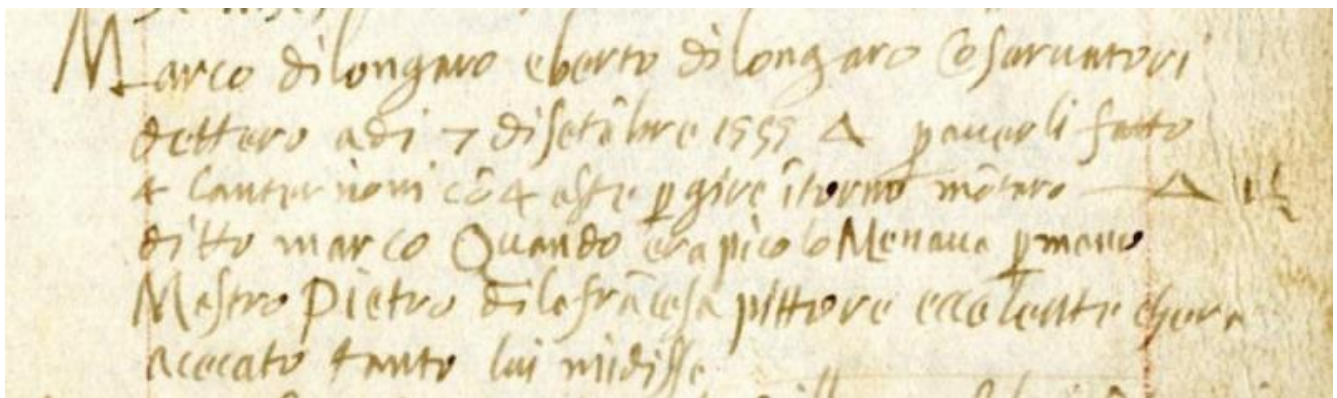 Marco di longaro e berto di longaro cõservatori
dettero adi 7 di setẽbre 1556 △ p averli fatto
4 lanternoni cõ 4 aste p gire ĩtorno mõtaro △ 1
ditto marco Quando era picolo Menava p mano
Mastro Pietro di la frãcesca pittore eccelente che era
acecato tanto lui mi disse